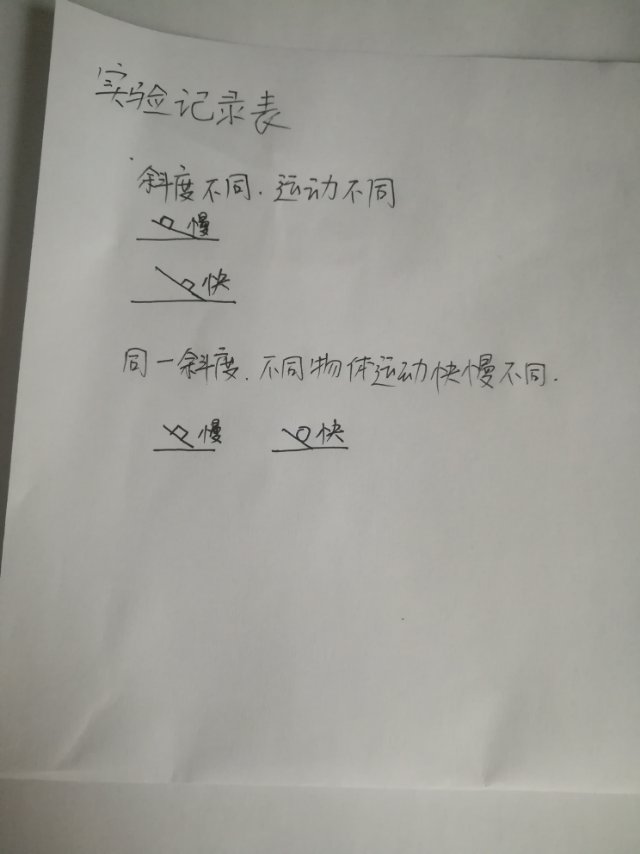 实验记录表
斜度不同.运动不同
慢
快
同一斜度.不同物体运动快慢不同.
慢 快